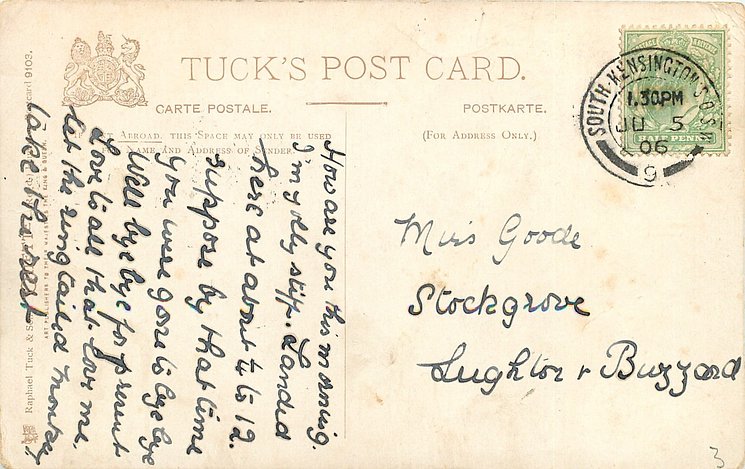 TUCK'S POST CARD.
CARTE POSTALE.
POSTKARTE.
ABROAD, THIS SPACE MAY ONLY BE USED
NAME AND ADDRESS OF SENDER.
(FOR ADDRESS ONLY.)
How are you this morning.
I'm jolly stiff. Landed
here at about ¼ to 12.
suppose by that time
you were gone to bye bye
Well bye bye for present
Love to all that love me.
let the ring tailed monkey
take the rest
SOUTH KENSINGTON S.O. S.W
1.30PM
JU 5
06
9
HALF PENNY
Miss Goode
Stockgrove
Leighton Buzzard
Raphael Tuck & So
ART PUBLISHERS TO THEIR MAJESTIES THE KING & QUEEN.
card 9103.
3